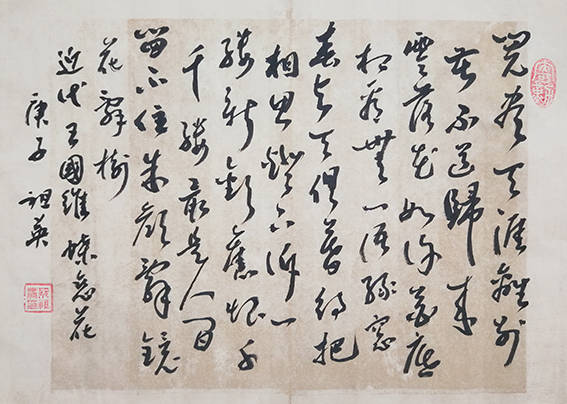 閱盡天涯離別
苦不道歸來
零落花如許花底
相看無一語綠窗
春與天俱暮待把
相思燈下訴一
縷新歡舊恨千
千縷最是人間
留不住朱顏辭鏡
花辭樹
近代王國維蝶戀花
庚子 祖英